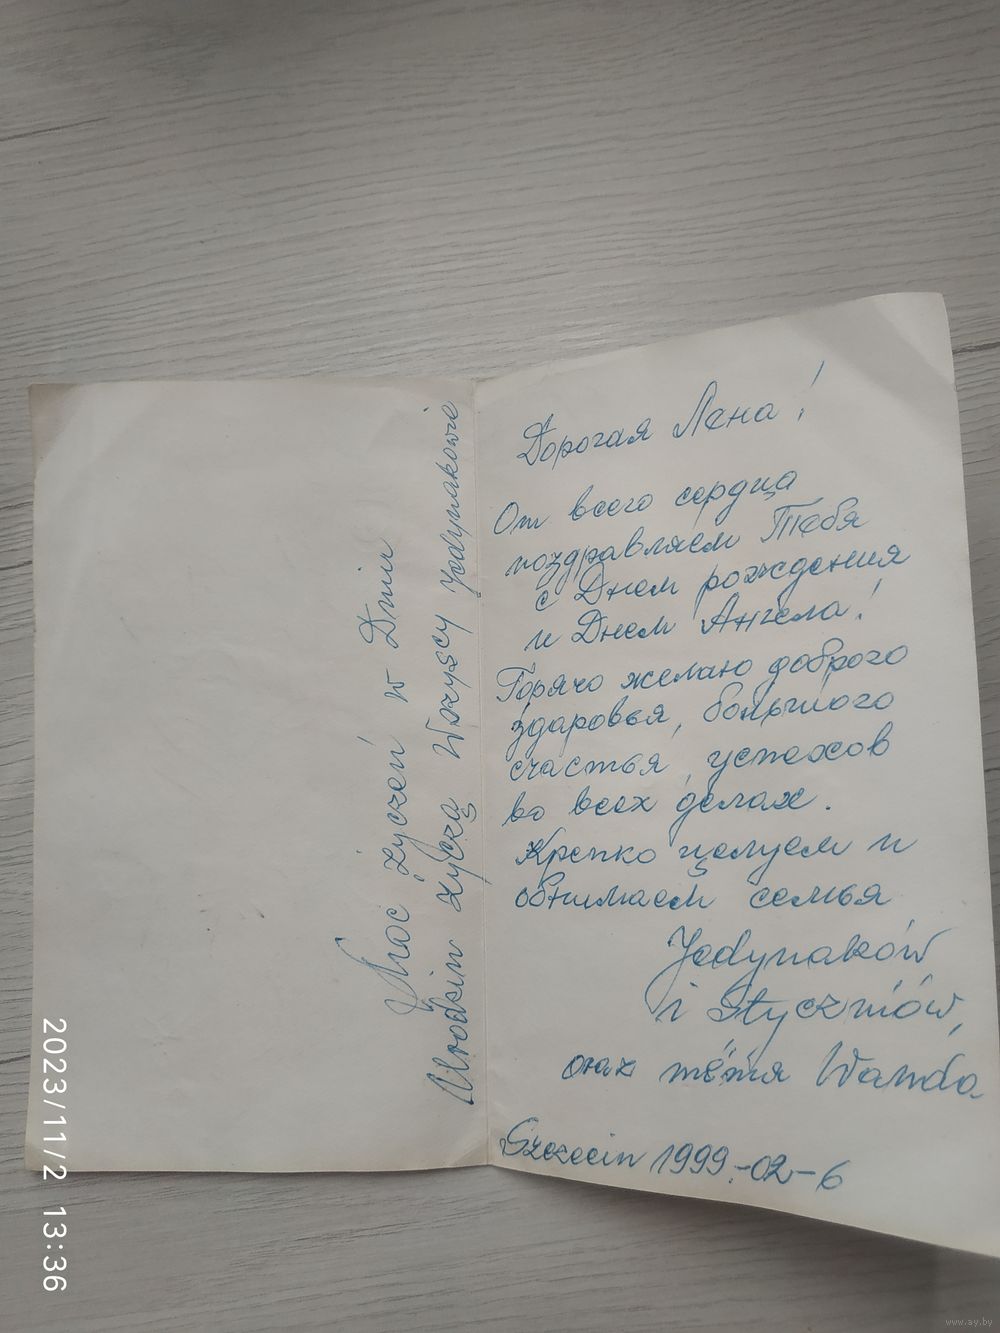 Moc życzeń w Dniu
Urodzin życzą Wszyscy Jedynakowie
Дорогая Лена!
От всего сердца
поздравляем Тебя
с Днем рождения
и Днем Ангела!
Горячо желаю доброго
здаровья, большого
счастья, успехов
во всех делах.
Крепко целуем и
обнимаем семья
Jedynaków
i Styczniów,
oraz тётя Wanda
Szczecin 1999.-02-6
2023/11/2 13:36
www.ay.by